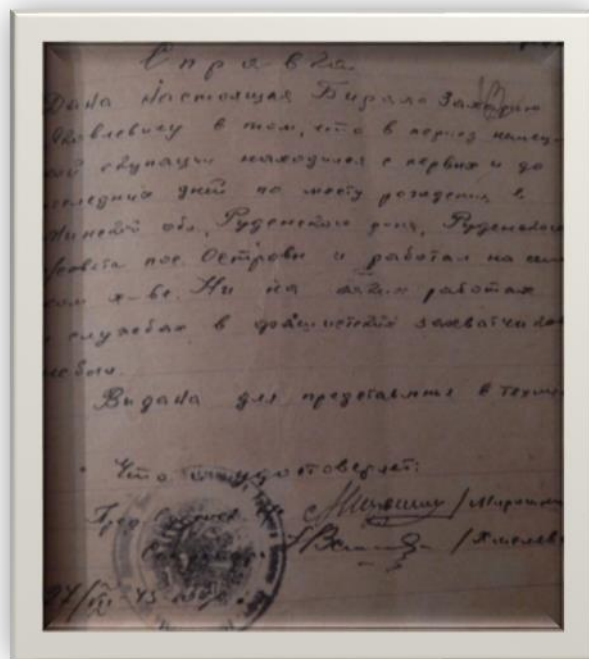 Справка
Дана настоящая Бирало Захарию
Яковлевичу в том, что в период немец-
кой окупации находился с первых и до
последних дней по месту рождения в
Минской обл, Руденского р-на, Руденского
с/совета пос. Островы и работал на
х-ве. Ни на каких работах
службах в фашистских захватчиков
не был.
Видана для представления в техни
Что и удостоверяет:
Пред
/Мирошни
/Хмелев
27/ 45